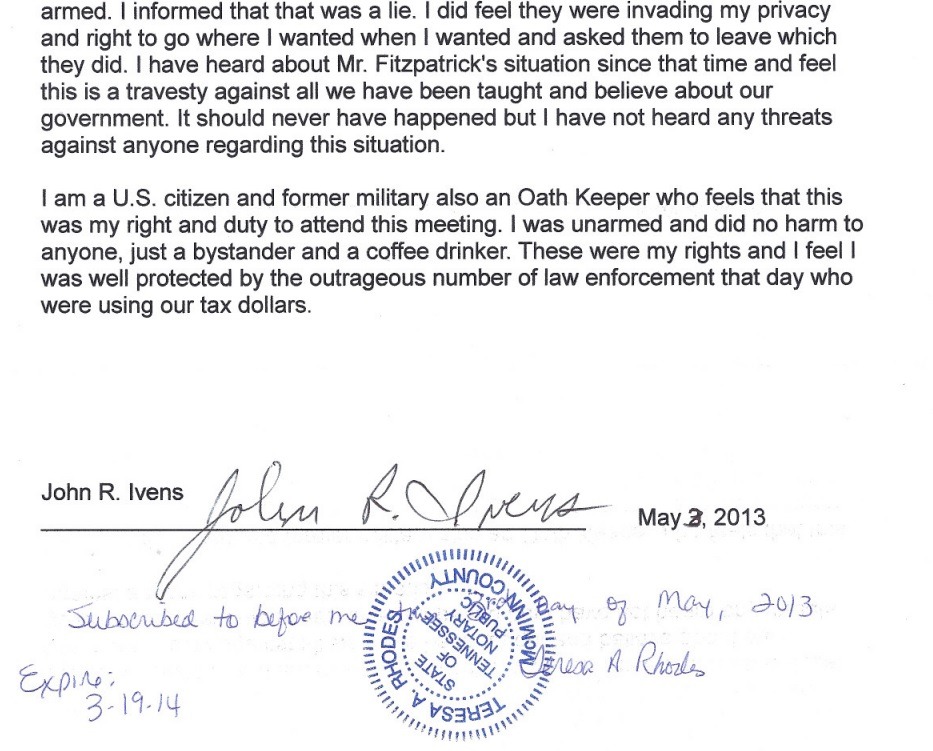 armed. I informed that that was a lie. I did feel they were invading my privacy
and right to go where I wanted when I wanted and asked them to leave which
they did. I have heard about Mr. Fitzpatrick's situation since that time and feel
this is a travesty against all we have been taught and believe about our
government. It should never have happened but I have not heard any threats
against anyone regarding this situation.
I am a U.S. citizen and former military also an Oath Keeper who feels that this
was my right and duty to attend this meeting. I was unarmed and did no harm to
anyone, just a bystander and a coffee drinker. These were my rights and I feel I
was well protected by the outrageous number of law enforcement that day who
were using our tax dollars.
John R. Ivens John R. Ivens
May 3, 2013
Subscribed to before me day of May, 2013
Teresa A Rhodes
Expire:
3-19-14
TERESA A. RHODES
McMINN COUNTY
STATE
OF
TENNESSEE
NOTARY
PUBLIC